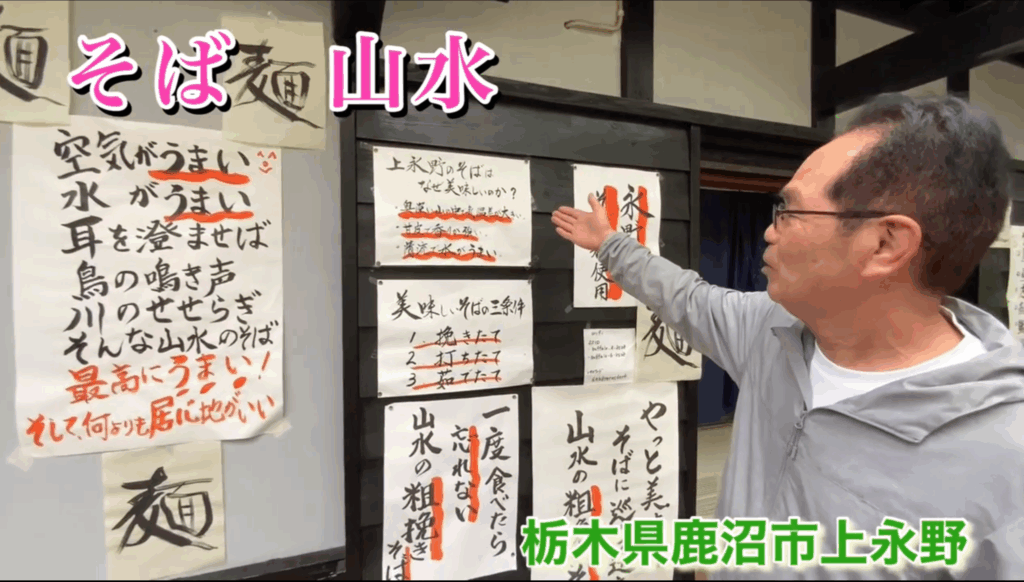 そば 山水
麺
麺
空気がうまい
水がうまい
耳を澄ませば
鳥の鳴き声
川のせせらぎ
そんな山水のそば
最高にうまい!
そして、何よりも居心地がいい
麺
上永野のそばは
なぜ美味しいのか?
美味しいそばの三条件
1 挽きたて
2 打ちたて
3 茹でたて
永野
使用
麺
一度食べたら
忘れない
山水の粗挽き
そば
やっと美
そばに巡
山水の粗
栃木県鹿沼市上永野